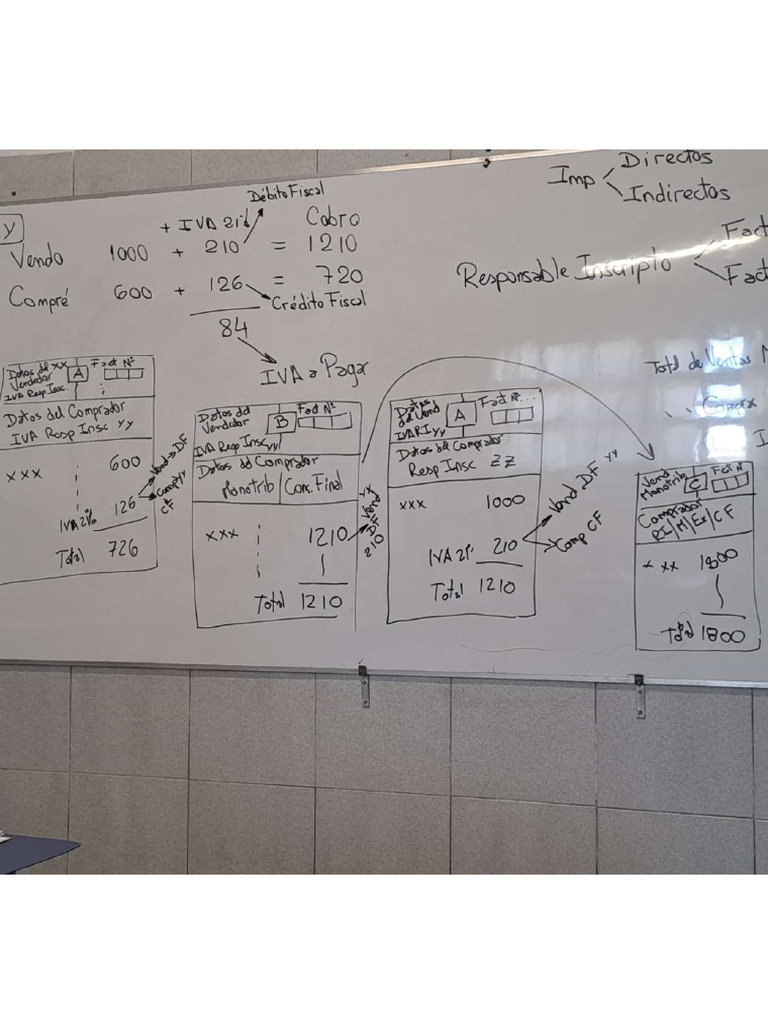 Y
Débito Fiscal
+ IVA 21% Cobro
Vendo 1000 + 210 = 1210
Compré 600 + 126 = 720
Crédito Fiscal
84
IVA a Pagar
Imp
Directos
Indirectos
Responsable Inscripto
Fact
Fact
Total de Ventas
Compra
Datos del XX
Vendedor
IVA Resp Insc.
A
Fact Nº
Datos del Comprador
IVA Resp Insc YY
XXX 600
IVA 21% 126
Vend → DF
Comp YY
CF
Total 726
Datos del
Vendedor
IVA Resp Insc YY
B
Fact Nº
Datos del Comprador
Monotrib / Cons. Final
XXX 1210
Vend YY
210 DF
Total 1210
Datos
del Vend
IVA RI YY
A
Fact Nº...
Datos del Comprador
Resp Insc ZZ
XXX 1000
IVA 21% 210
Vend DF YY
Comp CF
Total 1210
Vend
Monotrib
C
Fact N
Comprador
RI/M/Ex/CF
XXX 1800
Total 1800